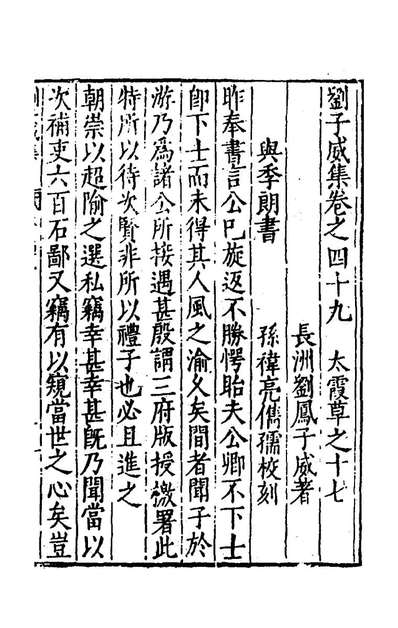 劉子威集卷之四十九　太霞草之十七
長洲劉鳳子威著
孫禕亮儁孺校刻
與季朗書
昨奉書言公已旋返不勝愕眙夫公卿不下士
卽下士而未得其人風之渝久矣間者聞子於
游乃爲諸公所接遇甚殷謂三府版授徼署此
特所以待次賢非所以禮子也必且進之
朝崇以超踰之選私竊幸甚幸甚旣乃聞當以
次補吏六百石鄙又竊有以窺當世之心矣豈